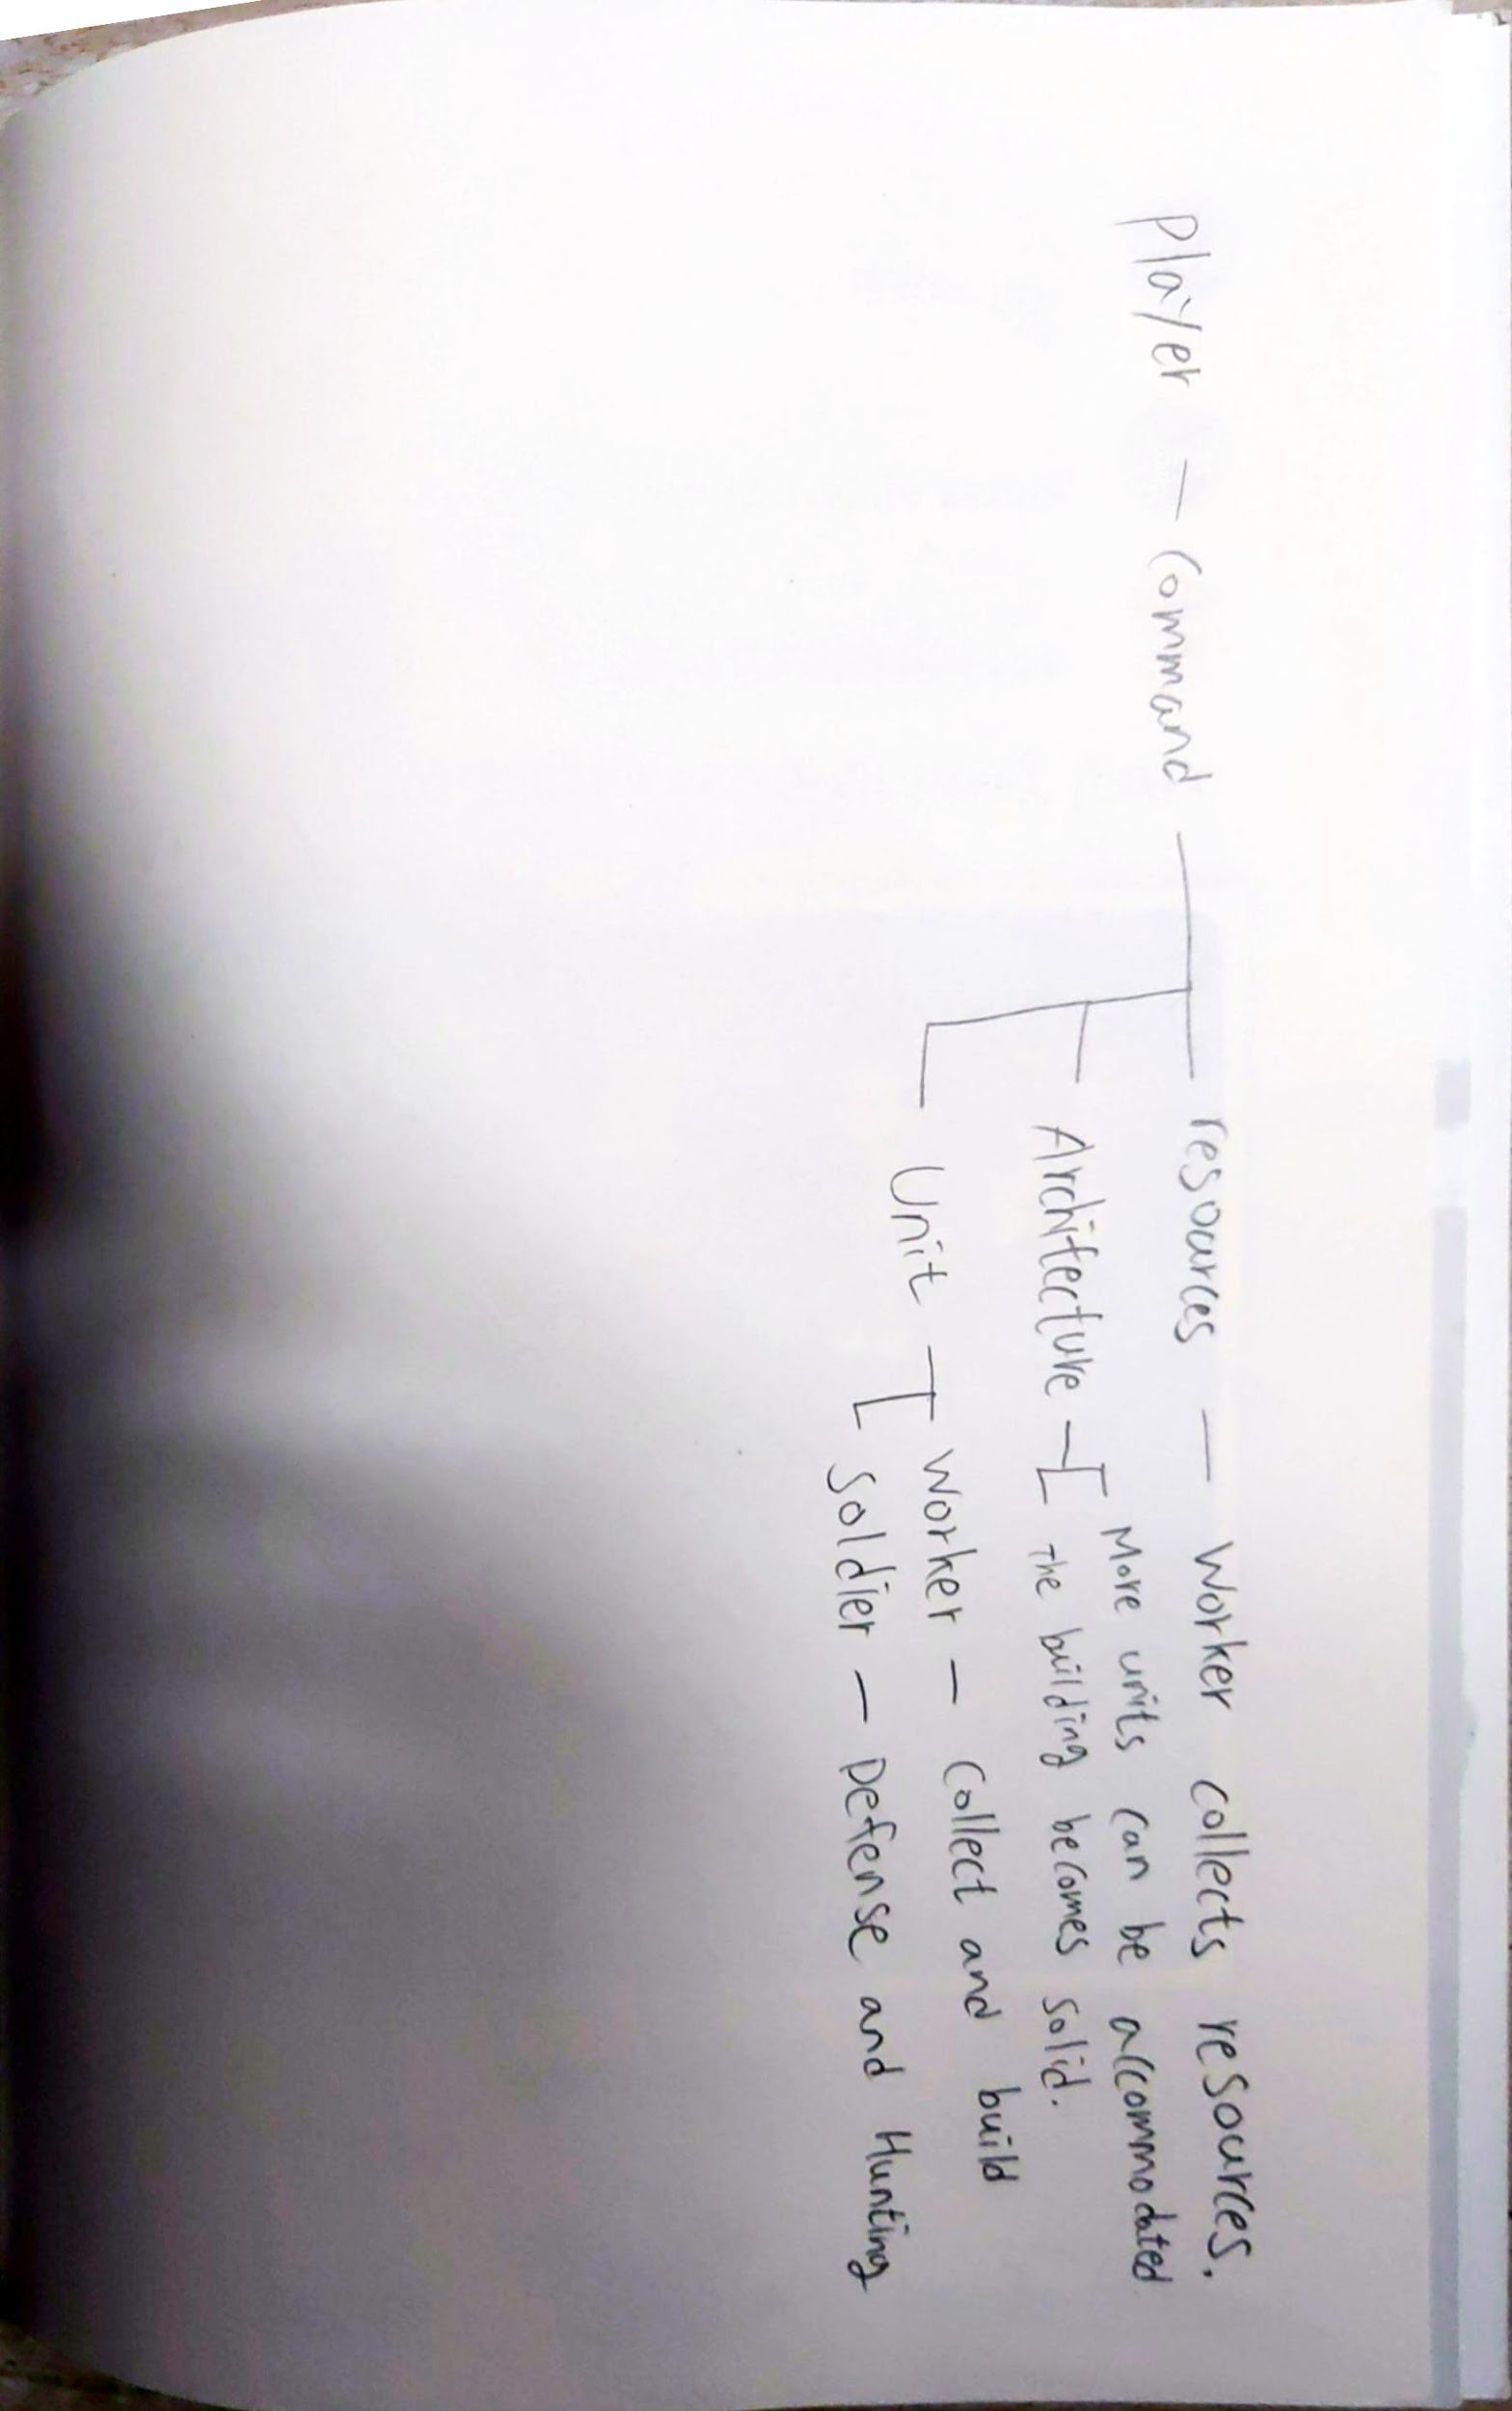 Player — Command — resources — Worker collects resources.
Architecture — More units can be accommodated
The building becomes solid.
Unit — Worker — Collect and build
Soldier — Defense and Hunting